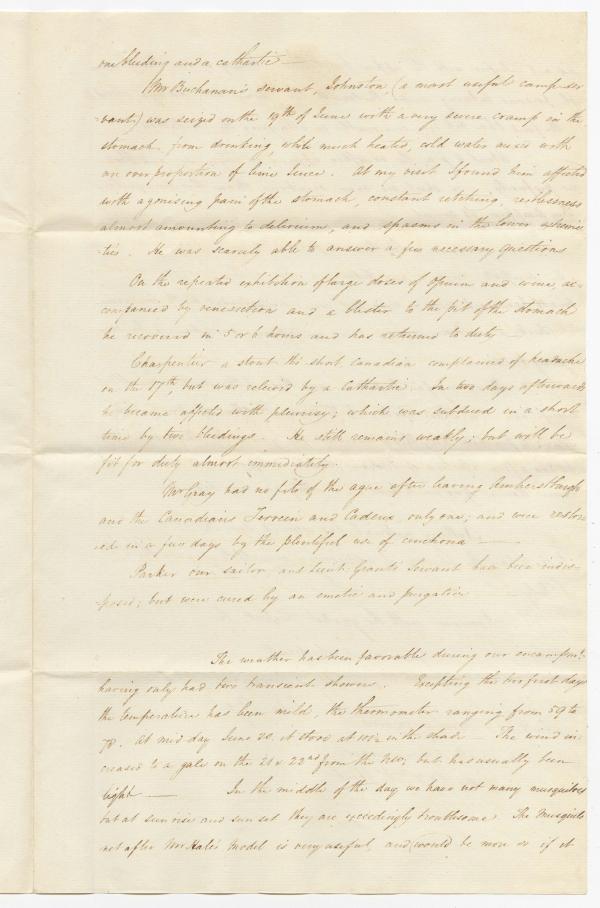 one bleeding and a cathartic —
Mr Buchanan's servant, Johnston (a most useful camp-ser
vant) was seized on the 19th of June with a very severe cramp in the
stomach from drinking, while much heated, cold water mixed with
an over proportion of lime Juice. At my visit I found him afflicted
with agonising pain of the stomach, constant retching, restlessness
almost amounting to delirium, and spasms in the lower extremi
ties. He was scarcely able to answer a few necessary questions
On the repeated exhibition of large doses of Opium and wine, ac-
companied by venesection and a blister to the pit of the stomach
he recovered in 5 or 6 hours and has returned to duty —
Charpentier a stout tho short Canadian complained of headache
on the 17th, but was relieved by a Cathartic. In two days afterwards
he became affected with pleurisy; which was subdued in a short
time by two bleedings. He still remains weakly; but will be
fit for duty almost immediately.
Mr Gray had no fits of the ague after leaving Amherstburgh
and the Canadians Terrein and Cadeux only one; and were restor
ed in a few days by the plentiful use of cinchona —
Parker our sailor and Lieut. Grant's Servant have been indis-
posed; but were cured by an emetic and purgative
The weather has been favorable during our encampmt.
having only had two transient showers. Excepting the two first days
the temperature has been mild, the thermometer ranging from 59 to
78. At mid day June 20. it stood at in the shade — The wind in
creased to a gale on the 21 & 22nd from the but has usually been
light — In the middle of the day we have not many musquitoes
but at sun rise and sun set they are exceedingly troublesome. The Musquito
net after Mr Hale's Model is very useful, and would be more so if it